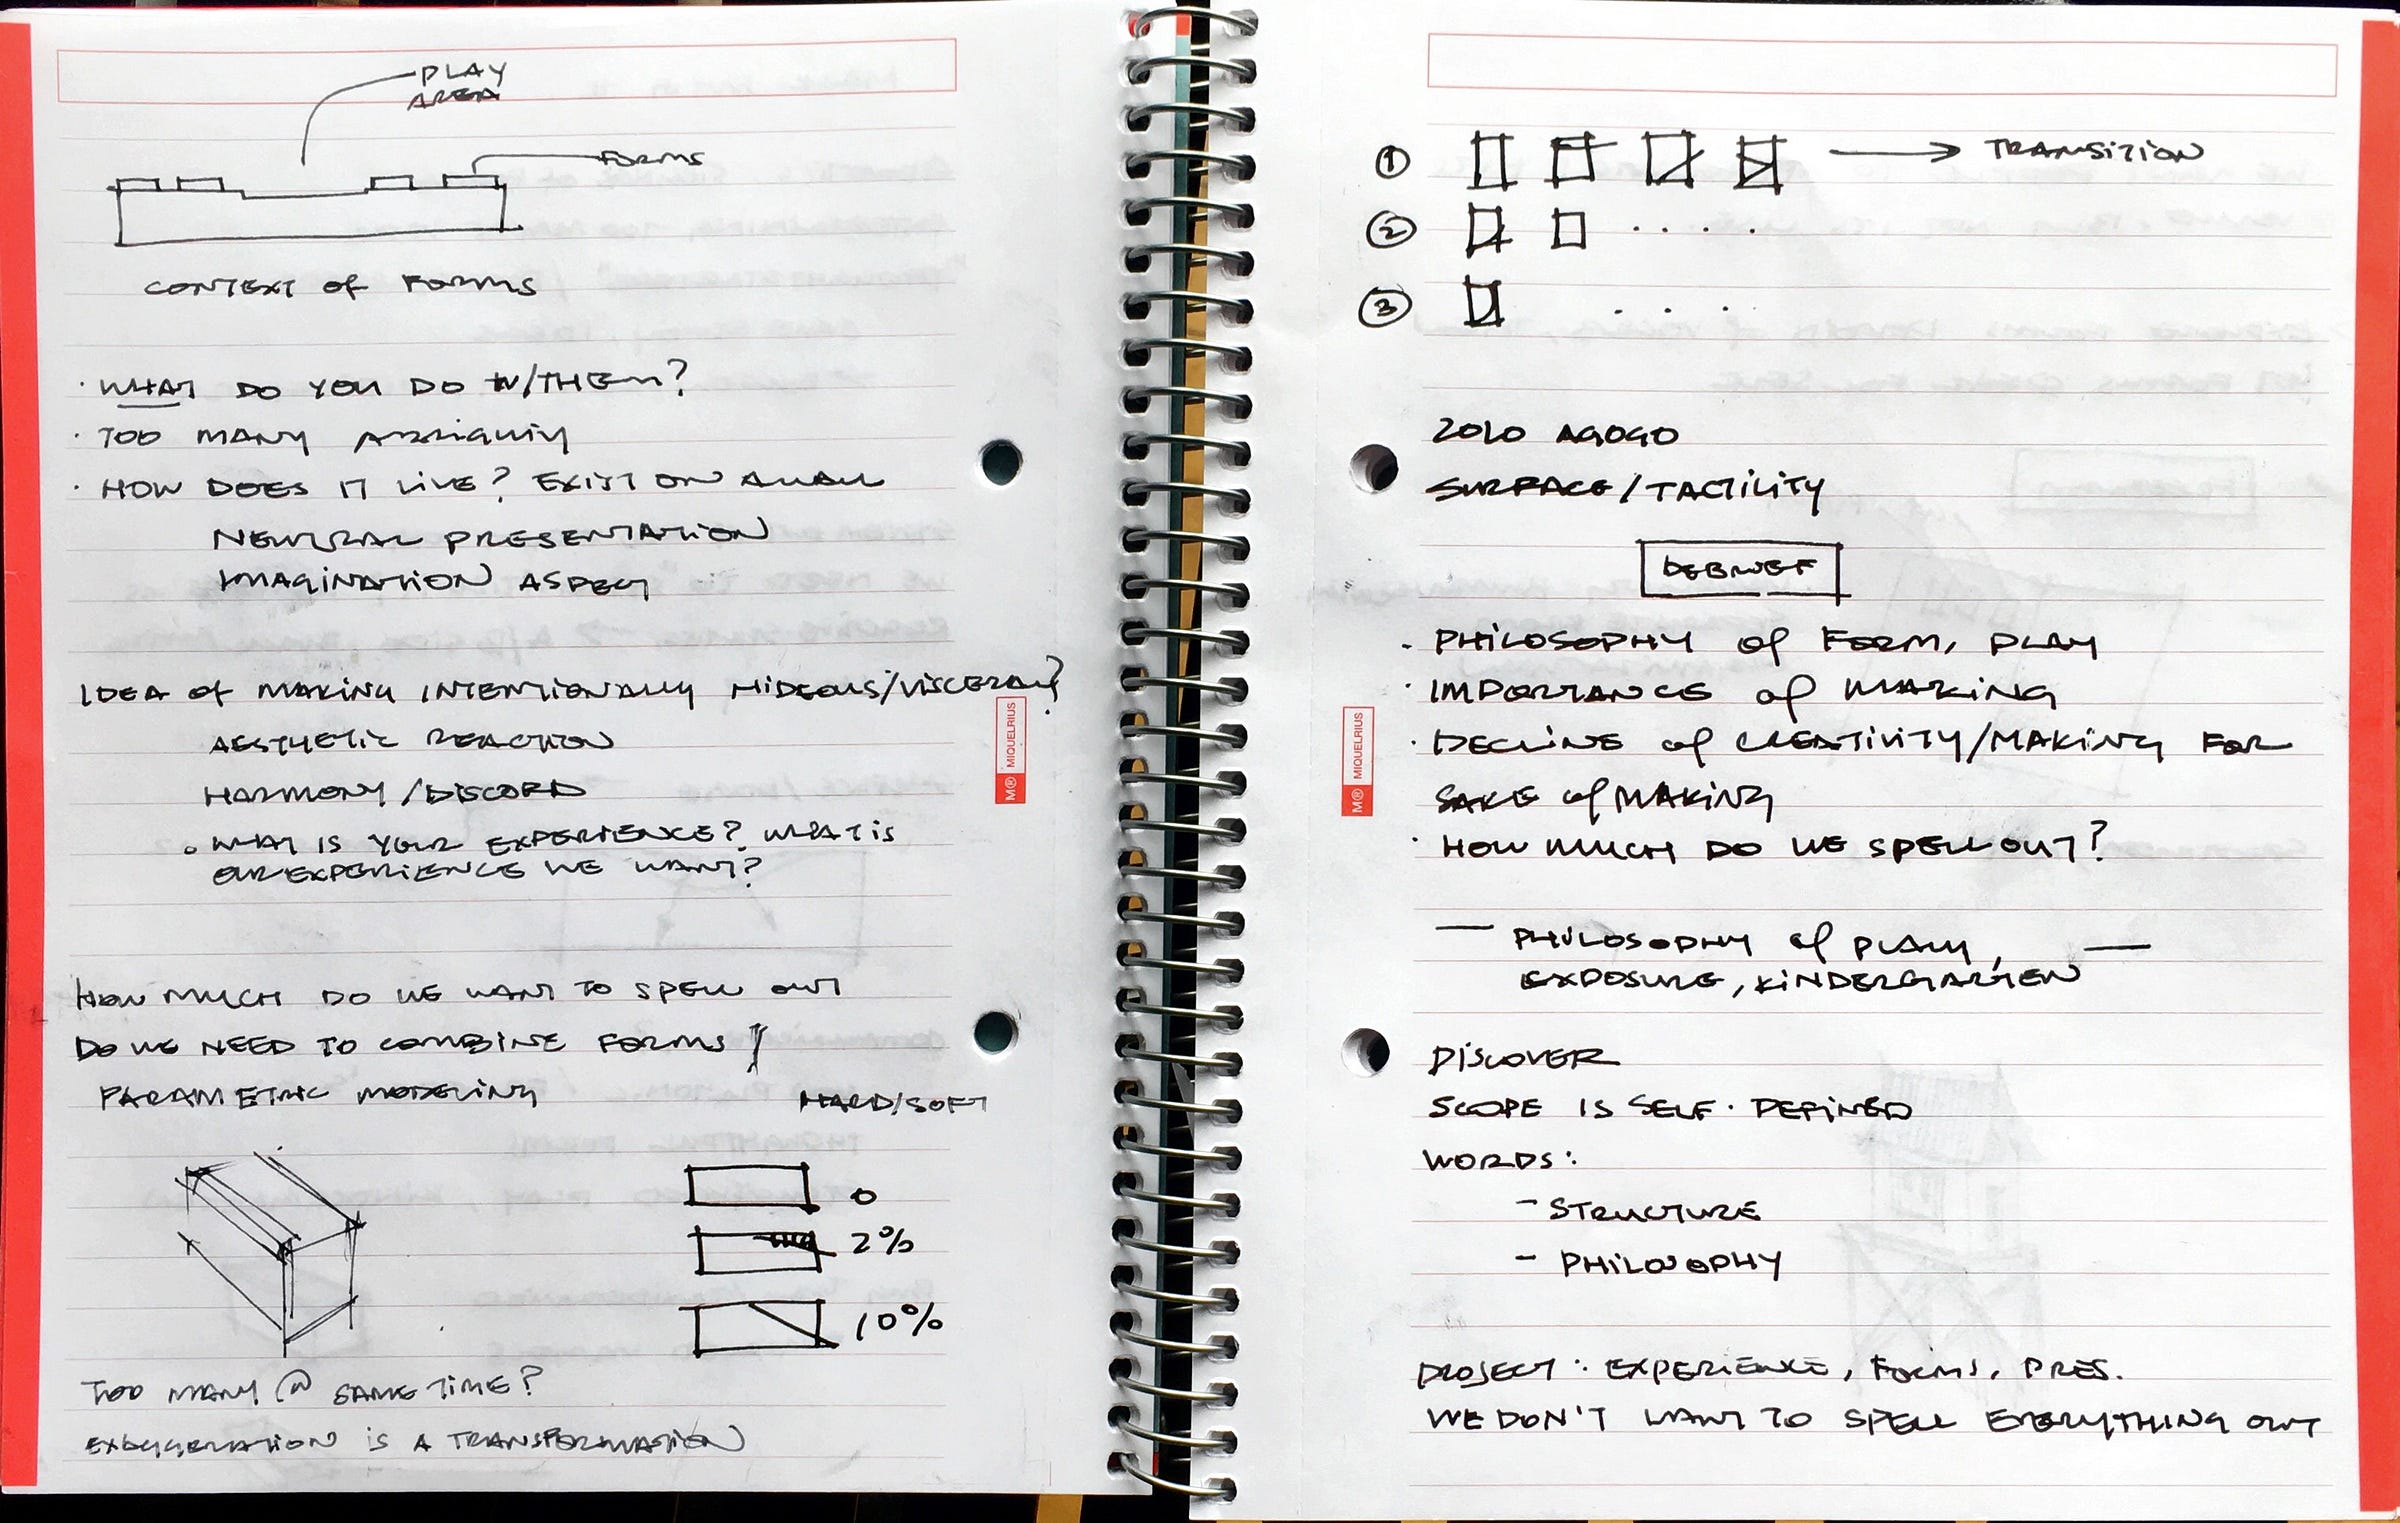 PLAY
AREA
FORMS
CONTEXT of FORMS
· WHAT DO YOU DO W/THEM?
· TOO MANY AMBIGUITY
· HOW DOES IT LIVE? EXIST ON A WALL
NEUTRAL PRESENTATION
IMAGINATION ASPECT
IDEA of MAKING INTENTIONALLY HIDEOUS/VISCERAL?
AESTHETIC REACTION
HARMONY/DISCORD
WHAT IS YOUR EXPERIENCE? WHAT IS
OUR EXPERIENCE WE WANT?
HOW MUCH DO WE WANT TO SPELL OUT
DO WE NEED TO COMBINE FORMS?
PARAMETRIC MODELING
HARD/SOFT
0
2%
10%
TOO MANY @ SAME TIME?
EXAGGERATION IS A TRANSFORMATION
M® MIQUELRIUS
① → TRANSITION
② . . . .
③ . . .
ZOLO AGOGO
SURFACE/TACTILITY
DEBRIEF
· PHILOSOPHY of FORM, PLAY
· IMPORTANCE of MAKING
· DECLINE of CREATIVITY/MAKING FOR
SAKE of MAKING
· HOW MUCH DO WE SPELL OUT?
— PHILOSOPHY of PLAY, —
EXPOSURE, KINDERGARTEN
DISCOVER
SCOPE IS SELF-DEFINED
WORDS:
- STRUCTURE
- PHILOSOPHY
PROJECT: EXPERIENCE, FORMS, PRES.
WE DON'T WANT TO SPELL EVERYTHING OUT
M® MIQUELRIUS